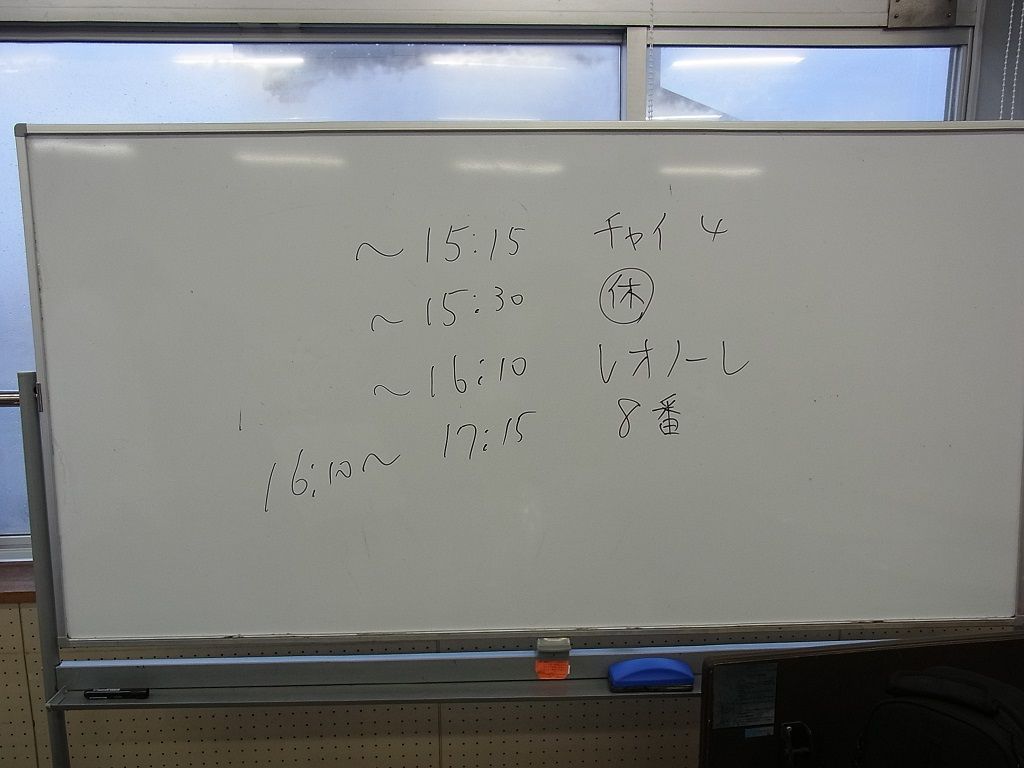 ～15:15 チャイ4
～15:30 休
～16:10 レオノーレ
16:10～17:15 8番